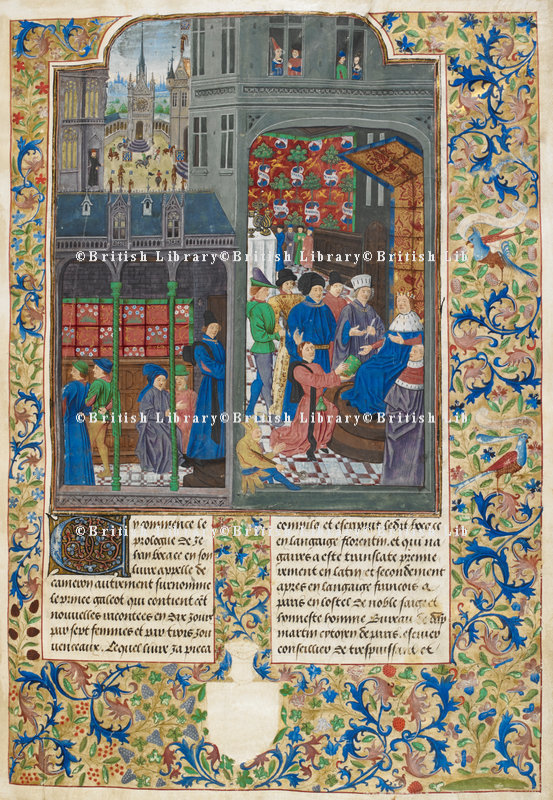 ©British Library©British Library©British Lib
©British Library©British Library©British Lib
©British Library©British Library©British Lib
Cy commence le
prologue de Je
han bocace en son
liure appelle de
cameron autrement surnomme
le prince galeot qui contient cēt
nouuelles racontees en dix jours
par sept femmes et par trois jou
uenceaux. Lequel liure ja pieca
compile et escript ledit bocace
en langaige florentin et qui na
gaires a este translate premie
rement en latin et secondement
apres en langaige francois a
paris en lostel de noble saige et
honneste homme Bureau de dam
martin cytoyen de paris escuier
conseillier de trespuissant et